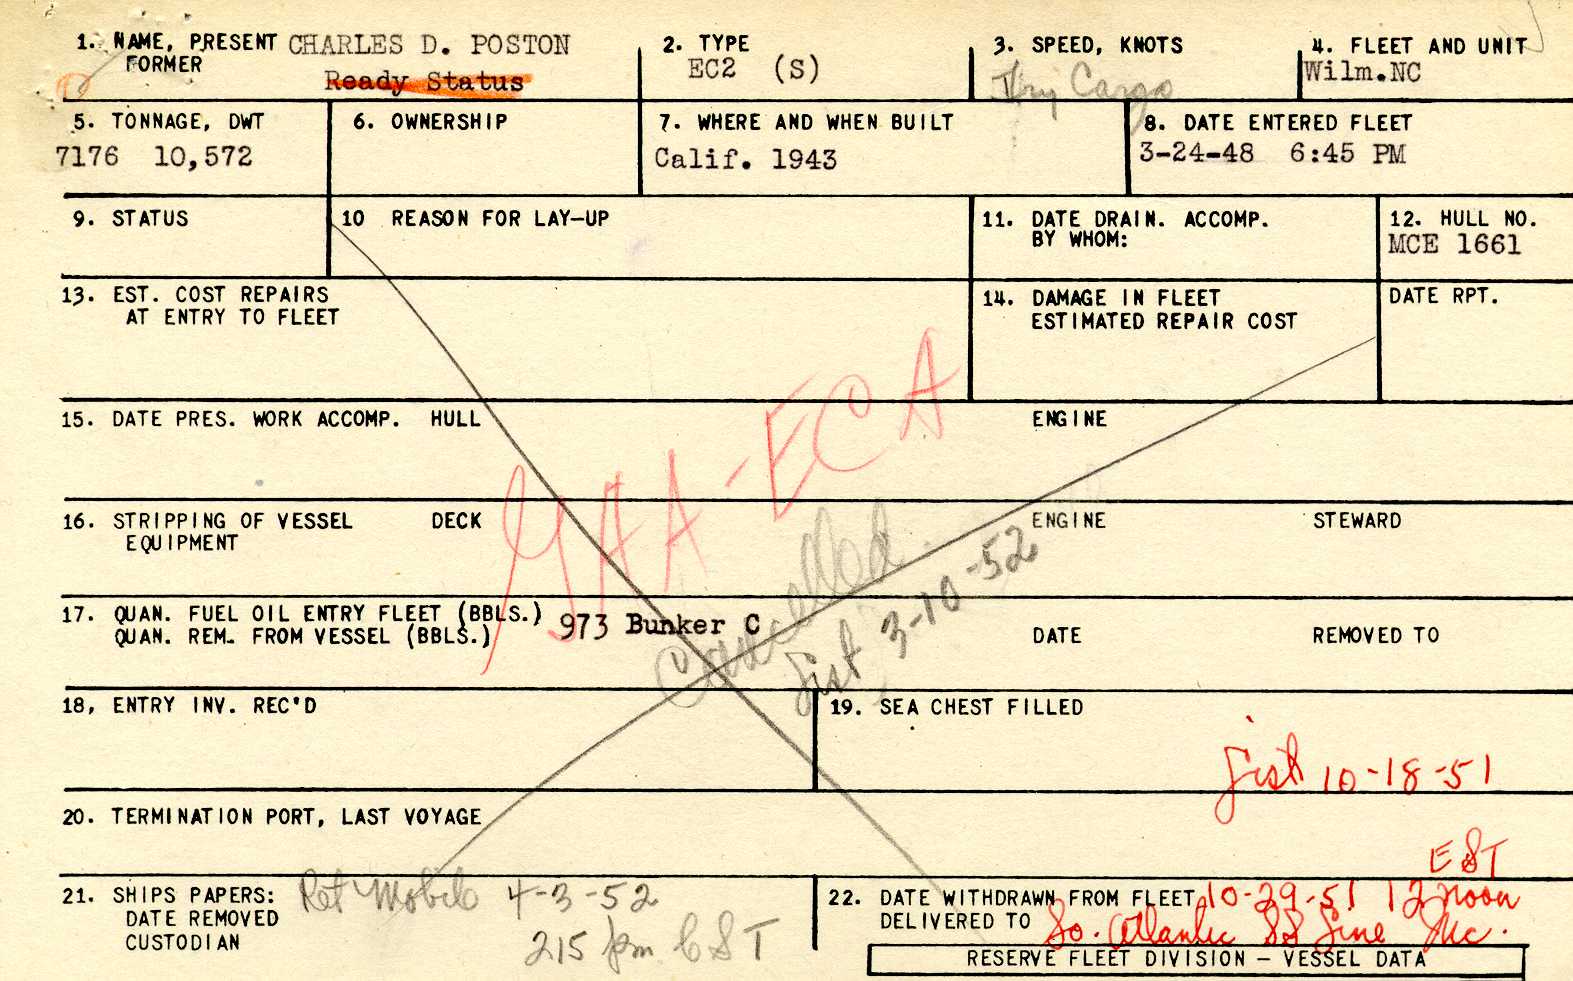 1. NAME, PRESENT CHARLES D. POSTON
FORMER
Ready Status
2. TYPE
EC2 (S)
3. SPEED, KNOTS
Dry Cargo
4. FLEET AND UNIT
Wilm.NC
5. TONNAGE, DWT
7176 10,572
6. OWNERSHIP
7. WHERE AND WHEN BUILT
Calif. 1943
8. DATE ENTERED FLEET
3-24-48 6:45 PM
9. STATUS
10 REASON FOR LAY-UP
11. DATE DRAIN. ACCOMP.
BY WHOM:
12. HULL NO.
MCE 1661
13. EST. COST REPAIRS
AT ENTRY TO FLEET
14. DAMAGE IN FLEET
ESTIMATED REPAIR COST
DATE RPT.
15. DATE PRES. WORK ACCOMP. HULL
ENGINE
GAA-ECA
16. STRIPPING OF VESSEL DECK
EQUIPMENT
ENGINE
STEWARD
Cancelled
List 3-10-52
17. QUAN. FUEL OIL ENTRY FLEET (BBLS.)
QUAN. REM. FROM VESSEL (BBLS.)
973 Bunker C
DATE
REMOVED TO
18, ENTRY INV. REC'D
19. SEA CHEST FILLED
List 10-18-51
20. TERMINATION PORT, LAST VOYAGE
21. SHIPS PAPERS:
DATE REMOVED
CUSTODIAN
Ret Mobile 4-3-52
215 pm CST
EST
22. DATE WITHDRAWN FROM FLEET 10-29-51 12 noon
DELIVERED TO So. Atlantic SS Line Inc.
RESERVE FLEET DIVISION – VESSEL DATA